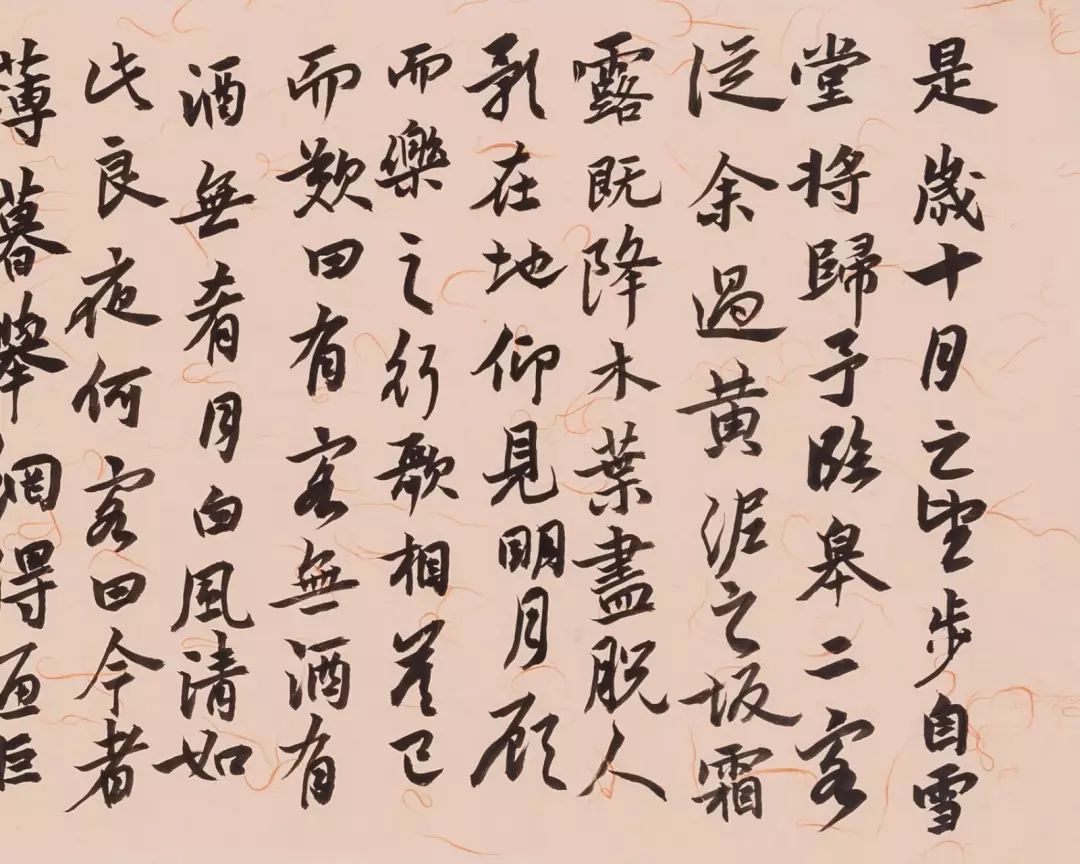 是歲十月之望步自雪
堂將歸予臨皋二客
從余過黃泥之坂霜
露既降木葉盡脫人
影在地仰見明月顧
而樂之行歌相答已
而歎曰有客無酒有
酒無肴月白風清如
此良夜何客曰今者
薄暮舉網得魚巨